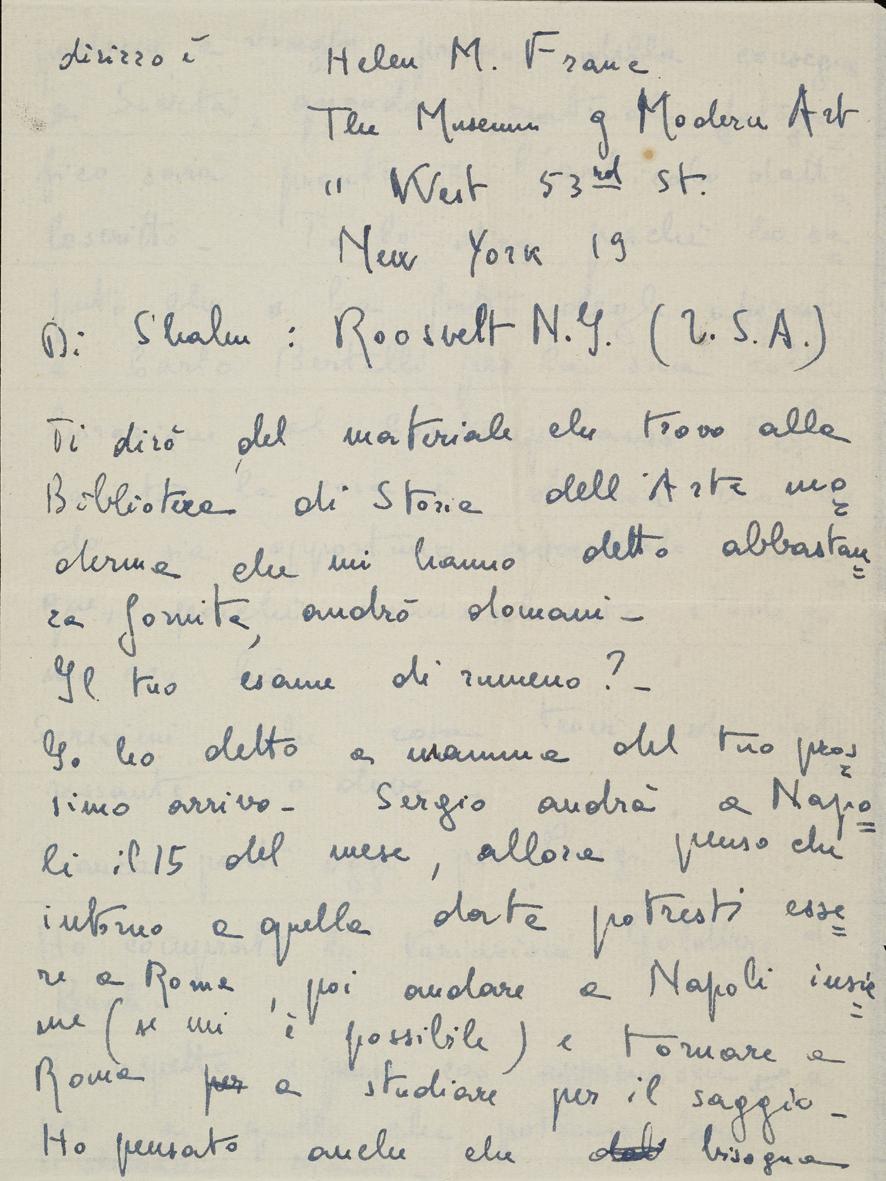 dirizzo è Helen M. Franc
The Museum of Modern Art
11 West 53rd St.
New York 19
Di Shahn : Roosvelt N.Y. (U.S.A.)
Ti dirò del materiale che trovo alla
Biblioteca di Storia dell'Arte mo=
derna che mi hanno detto abbastan=
za fornita, andrò domani -
Il tuo esame di rumeno? -
Io ho detto a mamma del tuo pros=
simo arrivo - Sergio andrà a Napo=
li il 15 del mese, allora penso che
intorno a quella data potresti esse=
re a Roma, poi andare a Napoli insie=
me (se mi è possibile) e tornare a
Roma per a studiare per il saggio -
Ho pensato anche che bisogna